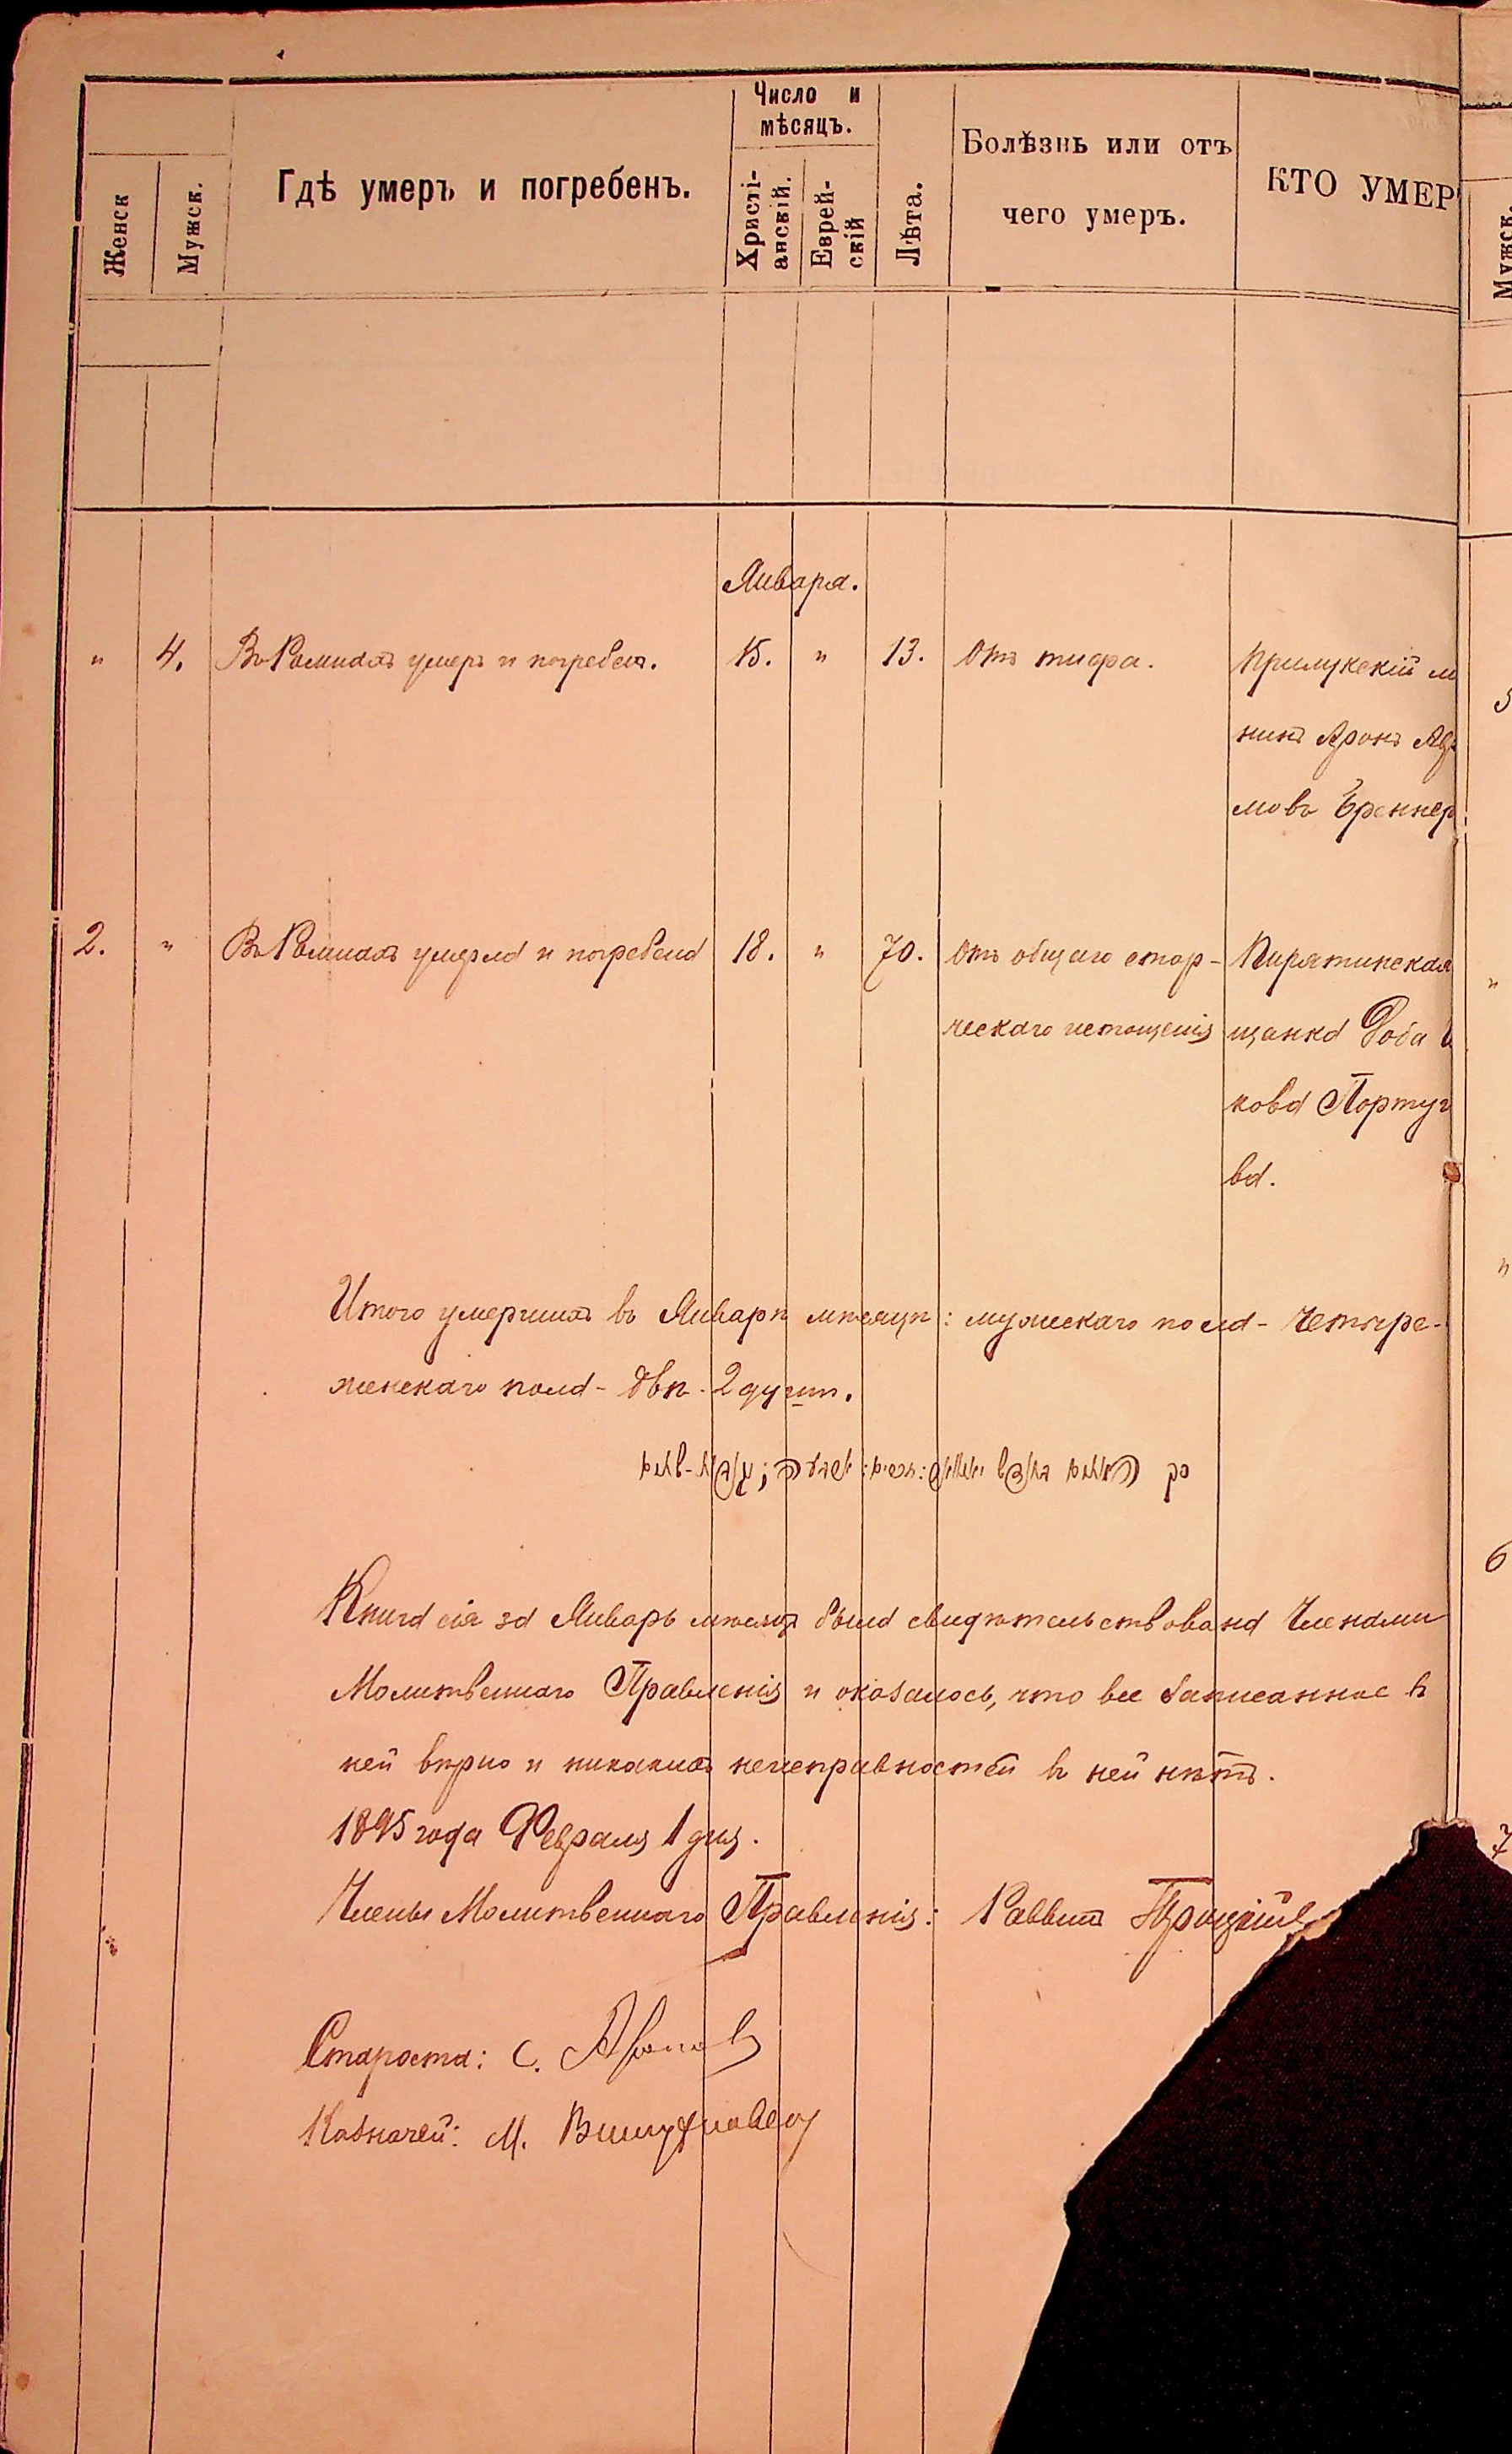 Женск
Мужск.
Гдѣ умеръ и погребенъ.
Число и
мѣсяцъ.
Христі-
анскій.
Еврей-
скій
Лѣта.
Болѣзнь или отъ
чего умеръ.
КТО УМЕР
Мужск.
Января.
" 4. Въ Ромнахъ умеръ и погребенъ. 15. " 13. Отъ тифа. Прилукскій м
нинъ Аронъ
мовъ Бреннер
2. " Въ Ромнахъ умерла и погребена 18. " 70. Отъ общаго стар- Пирятинская
ческаго истощенія щанка Роба
кова Португ
ва.
Итого умершихъ въ Январѣ мѣсяцѣ: мужескаго пола - четыре -
женскаго пола - двѣ - 2 душъ.
Книга сія за Январь мѣсяцъ была свидѣтельствована Членами
Молитвеннаго Правленія и оказалось, что все записанное въ
ней вѣрно и никакихъ неисправностей въ ней нѣтъ.
1895 года Февраля 1 дня.
Члены Молитвеннаго Правленія: Раввинъ
Староста: С.
Казначей: М.
5
"
"
6
7